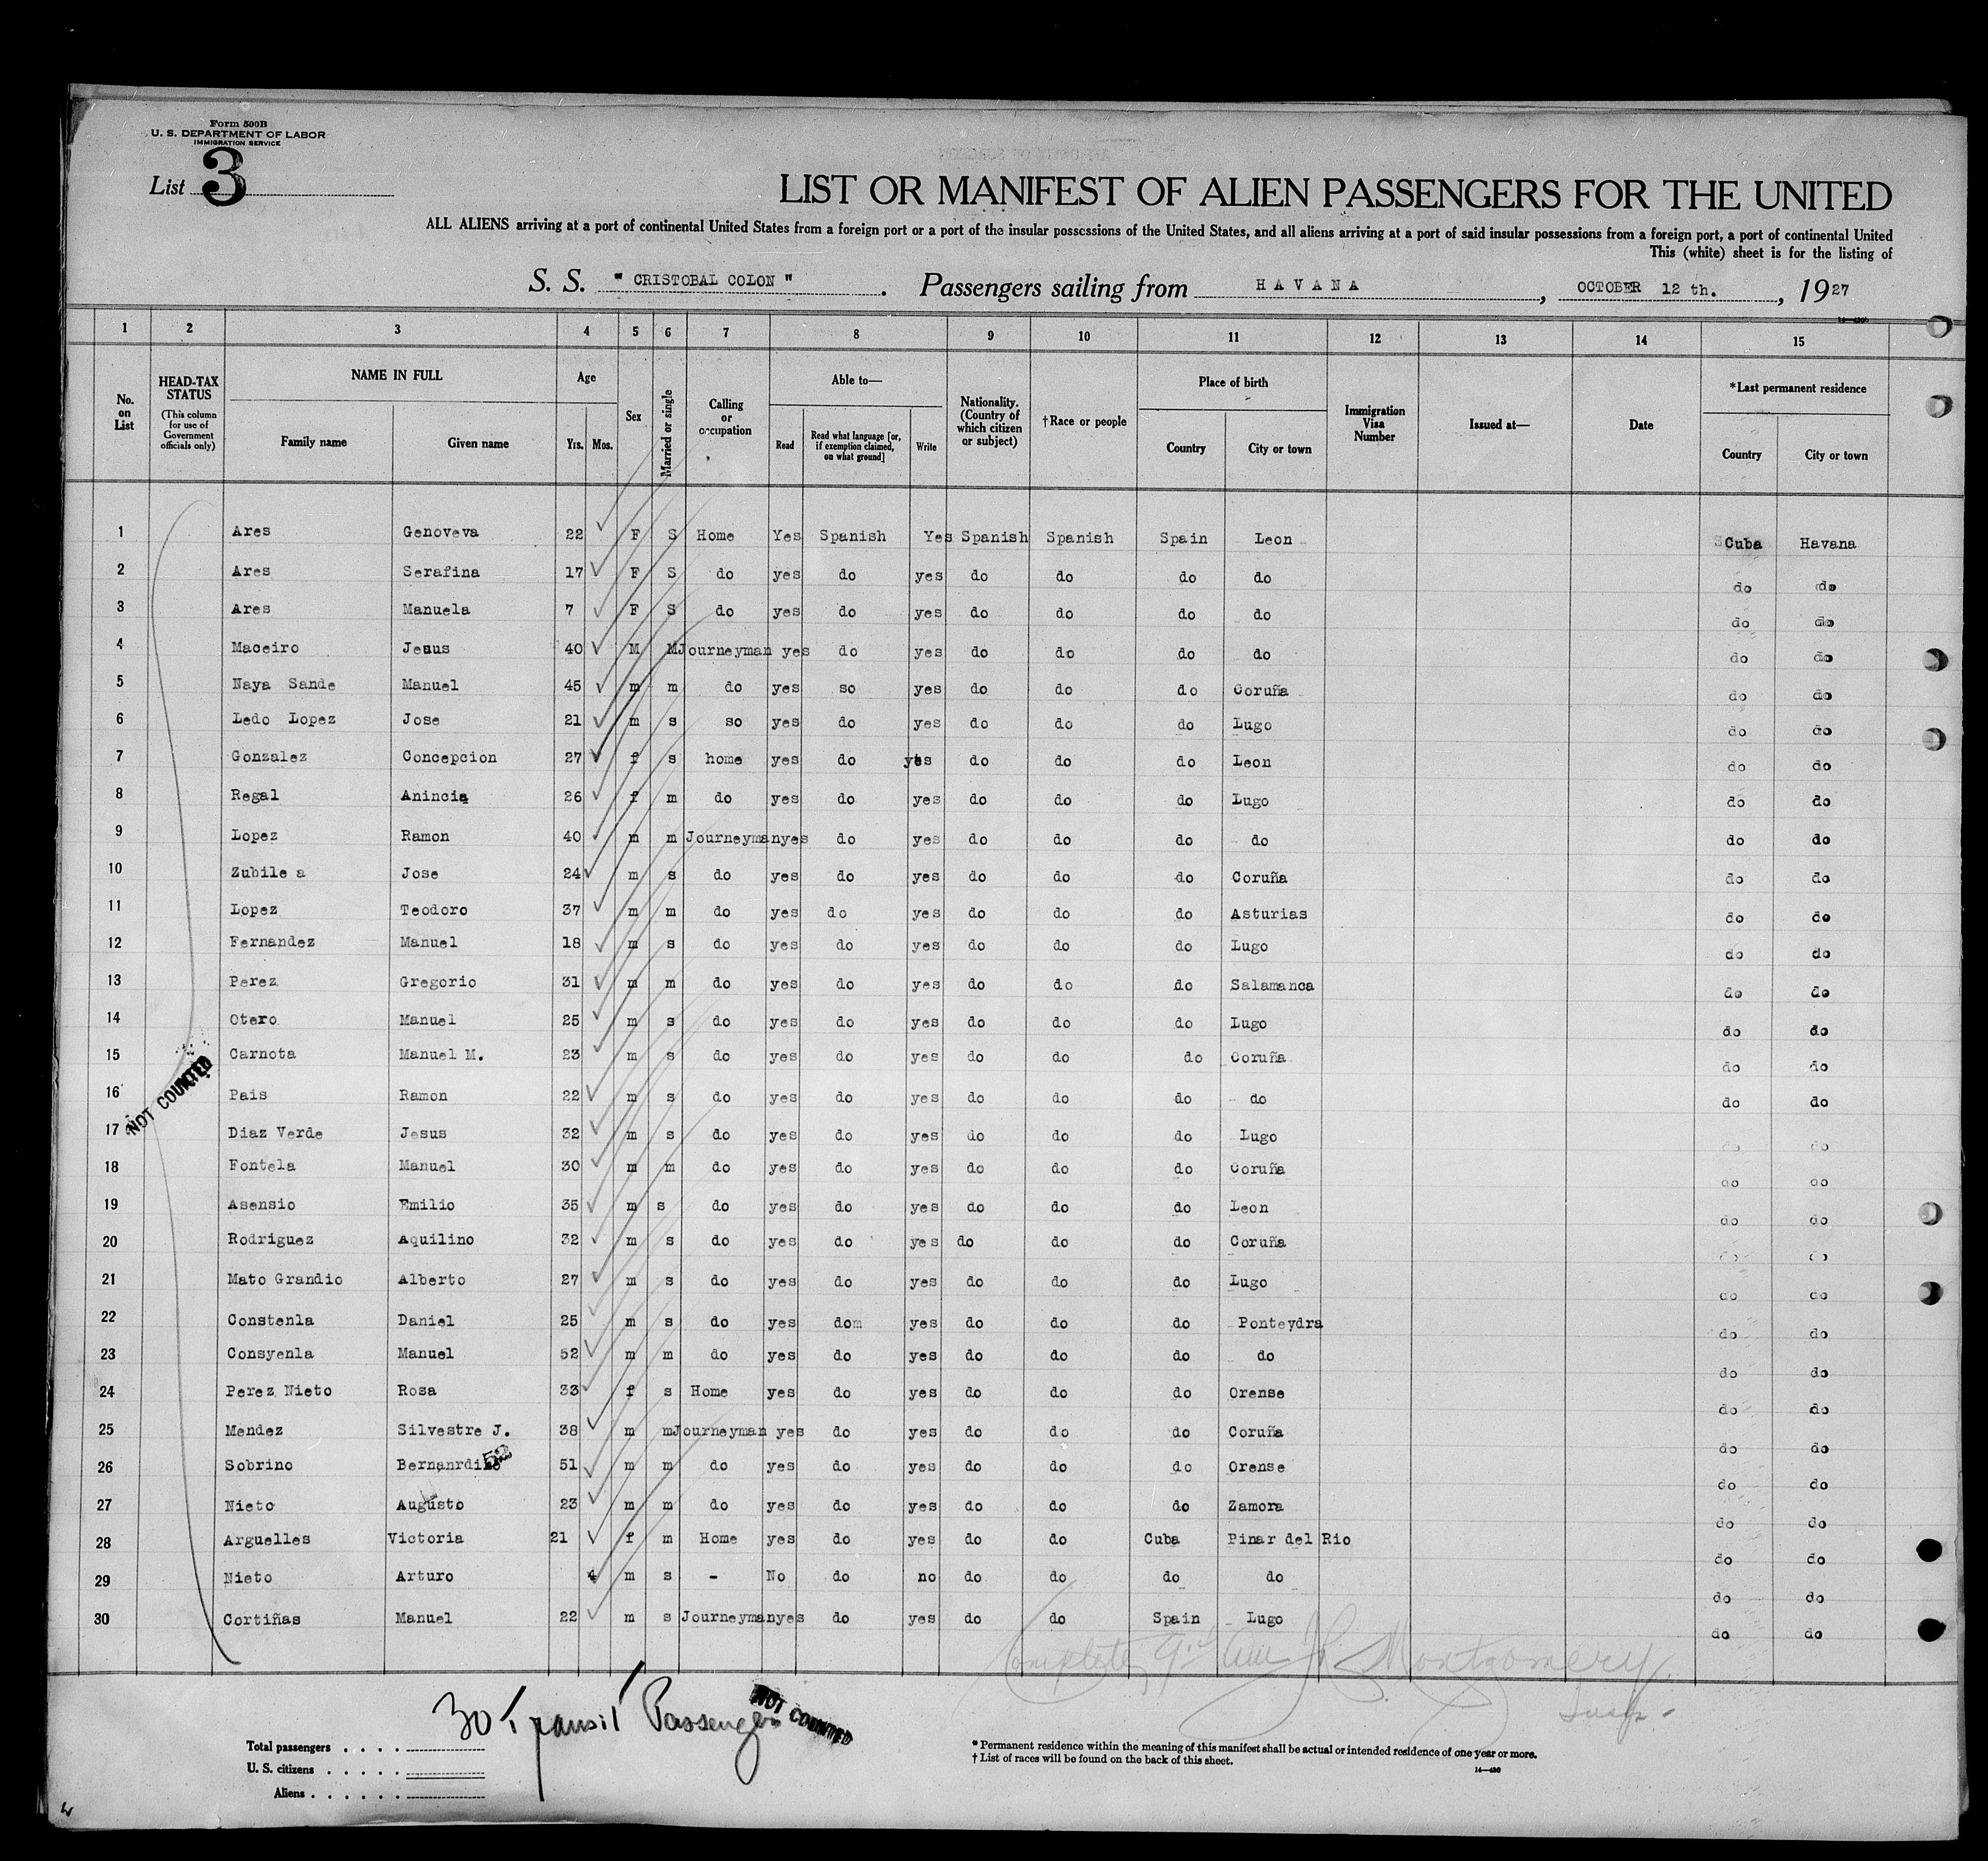 Form 500B
U. S. DEPARTMENT OF LABOR
IMMIGRATION SERVICE
List 3
LIST OR MANIFEST OF ALIEN PASSENGERS FOR THE UNITED
ALL ALIENS arriving at a port of continental United States from a foreign port or a port of the insular possessions of the United States, and all aliens arriving at a port of said insular possessions from a foreign port, a port of continental United
This (white) sheet is for the listing of
S. S. " CRISTOBAL COLON " . Passengers sailing from HAVANA , OCTOBER 12 th. , 1927
1 2 3 4 5 6 7 8 9 10 11 12 13 14 15
No. on List
HEAD-TAX STATUS
(This column for use of Government officials only)
NAME IN FULL
Family name Given name
Age
Yrs. Mos.
Sex
Married or single
Calling or occupation
Able to—
Read
Read what language [or, if exemption claimed, on what ground]
Write
Nationality. (Country of which citizen or subject)
†Race or people
Place of birth
Country City or town
Immigration Visa Number
Issued at—
Date
*Last permanent residence
Country City or town
1 Ares Genoveva 22 F S Home Yes Spanish Yes Spanish Spanish Spain Leon Cuba Havana
2 Ares Serafina 17 F S do yes do yes do do do do do do
3 Ares Manuela 7 F S do yes do yes do do do do do do
4 Maceiro Jesus 40 M M Journeyman yes do yes do do do do do do
5 Naya Sande Manuel 45 m m do yes so yes do do do Coruña do do
6 Ledo Lopez Jose 21 m s so yes do yes do do do Lugo do do
7 Gonzalez Concepcion 27 f s home yes do yes do do do Leon do do
8 Regal Anincia 26 f m do yes do yes do do do Lugo do do
9 Lopez Ramon 40 m m Journeyman yes do yes do do do do do do
10 Zubile a Jose 24 m s do yes do yes do do do Coruña do do
11 Lopez Teodoro 37 m m do yes do yes do do do Asturias do do
12 Fernandez Manuel 18 m s do yes do yes do do do Lugo do do
13 Perez Gregorio 31 m m do yes do yes do do do Salamanca do do
14 Otero Manuel 25 m s do yes do yes do do do Lugo do do
15 Carnota Manuel M. 23 m s do yes do yes do do do Coruña do do
16 Pais Ramon 22 m s do yes do yes do do do do do do
17 Diaz Verde Jesus 32 m s do yes do yes do do do Lugo do do
18 Fontela Manuel 30 m m do yes do yes do do do Coruña do do
19 Asensio Emilio 35 m s do yes do yes do do do Leon do do
20 Rodriguez Aquilino 32 m s do yes do yes do do do Coruña do do
21 Mato Grandio Alberto 27 m s do yes do yes do do do Lugo do do
22 Constenla Daniel 25 m s do yes dom yes do do do Ponteydra do do
23 Consyenla Manuel 52 m m do yes do yes do do do do do do
24 Perez Nieto Rosa 33 f s Home yes do yes do do do Orense do do
25 Mendez Silvestre J. 38 m m Journeyman yes do yes do do do Coruña do do
26 Sobrino Bernanrdino 52 51 m m do yes do yes do do do Orense do do
27 Nieto Augusto 23 m m do yes do yes do do do Zamora do do
28 Arguelles Victoria 21 f m Home yes do yes do do Cuba Pinar del Rio do do
29 Nieto Arturo 4 m s - No do no do do do do do do
30 Cortiñas Manuel 22 m s Journeyman yes do yes do do Spain Lugo do do
NOT COUNTED
Montgomery
30 Transit Passengers
NOT COUNTED
Total passengers
U. S. citizens
Aliens
* Permanent residence within the meaning of this manifest shall be actual or intended residence of one year or more.
† List of races will be found on the back of this sheet.
14—430